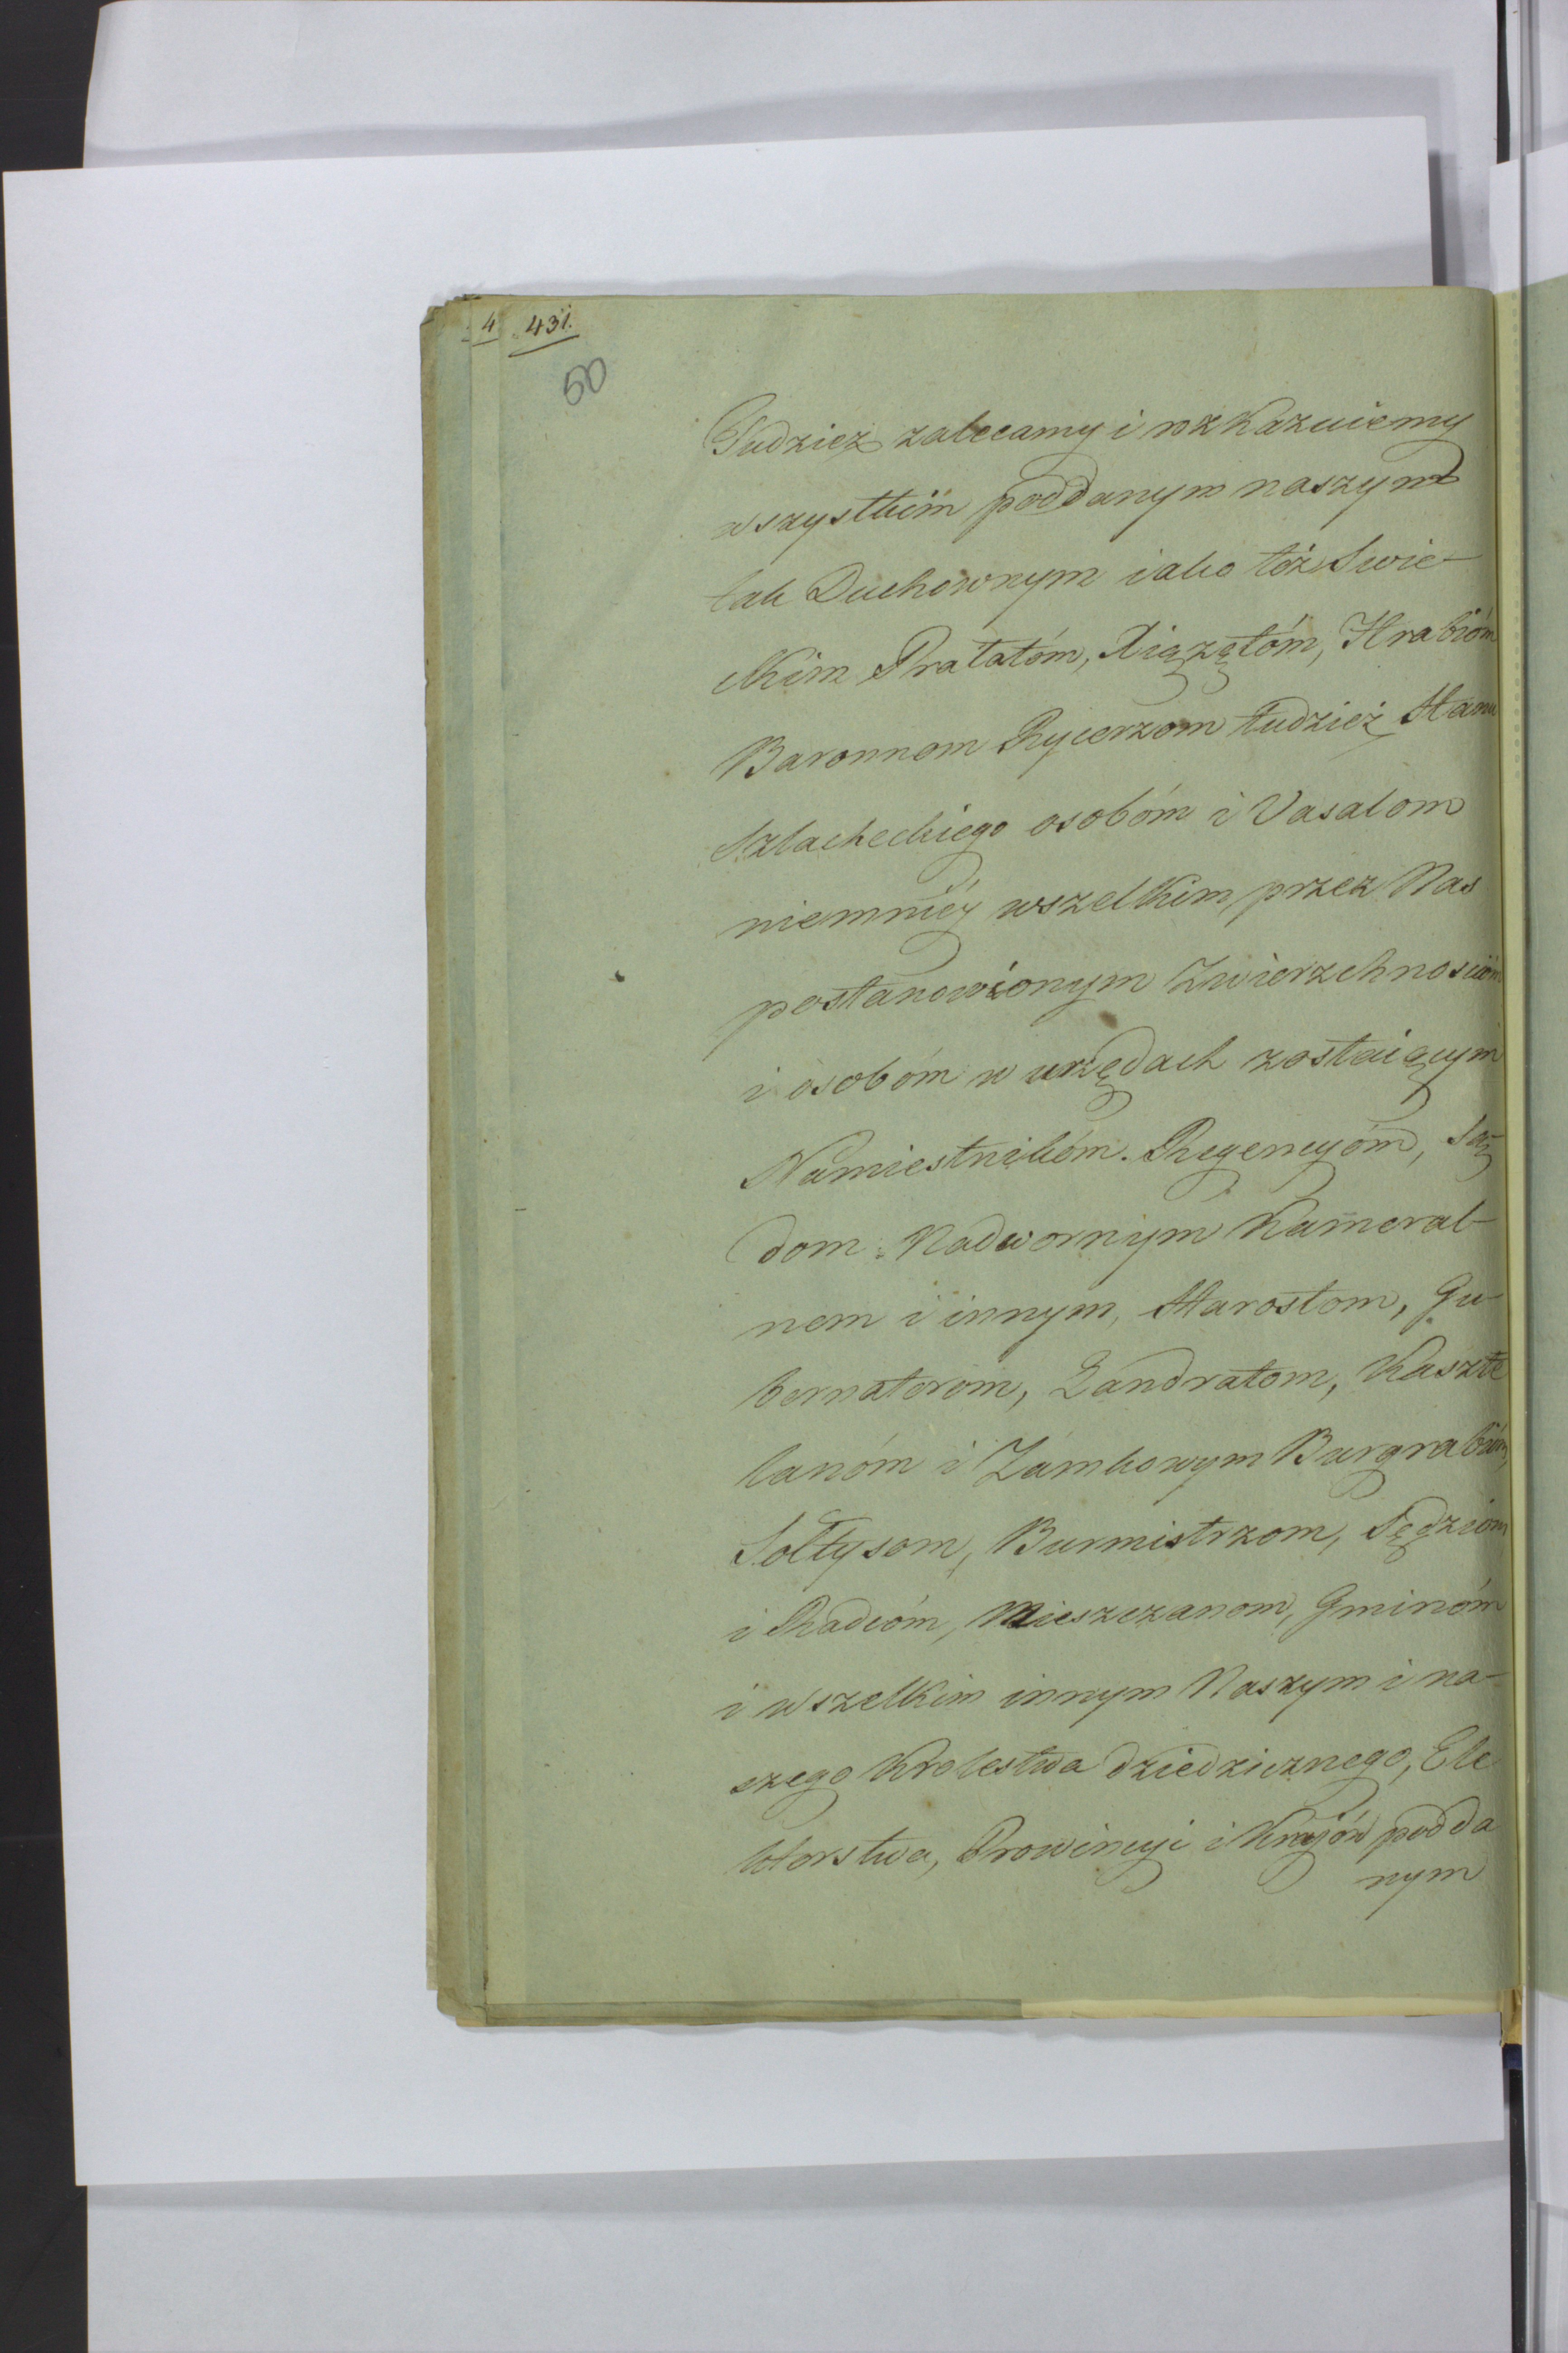 4 431.
50
Tudzież zalecamy i rozkazuiemy
wszystkim poddanym naszym
tak Duchownym iako też Swie-
ckim Prałatóm, Xiążętóm, Hrabióm
Baronnom Rycerzom tudzież Stanu
Szlacheckiego osobóm i Vasalom
niemniéy wszelkim przez Nas
postanowionym Zwierzchnosciom
i osobóm w urzędach zostaiącym
Namiestnikóm. Regencyóm, Są
dom Nadwornym Kameral-
nem i innym, Starostom, Gu-
bernatorom, Landratom, Kaszte
lanóm i Zámkowym Burgrabióm,
Sołtysom, Burmistrzom, Sędziom
i Radcóm, Mieszczanom, Gminóm
i wszelkim innym Naszym i na-
szego Krolestwa dziedzicznego, Ele
ktorstwa, Prowincyi i Krajów podda
nym